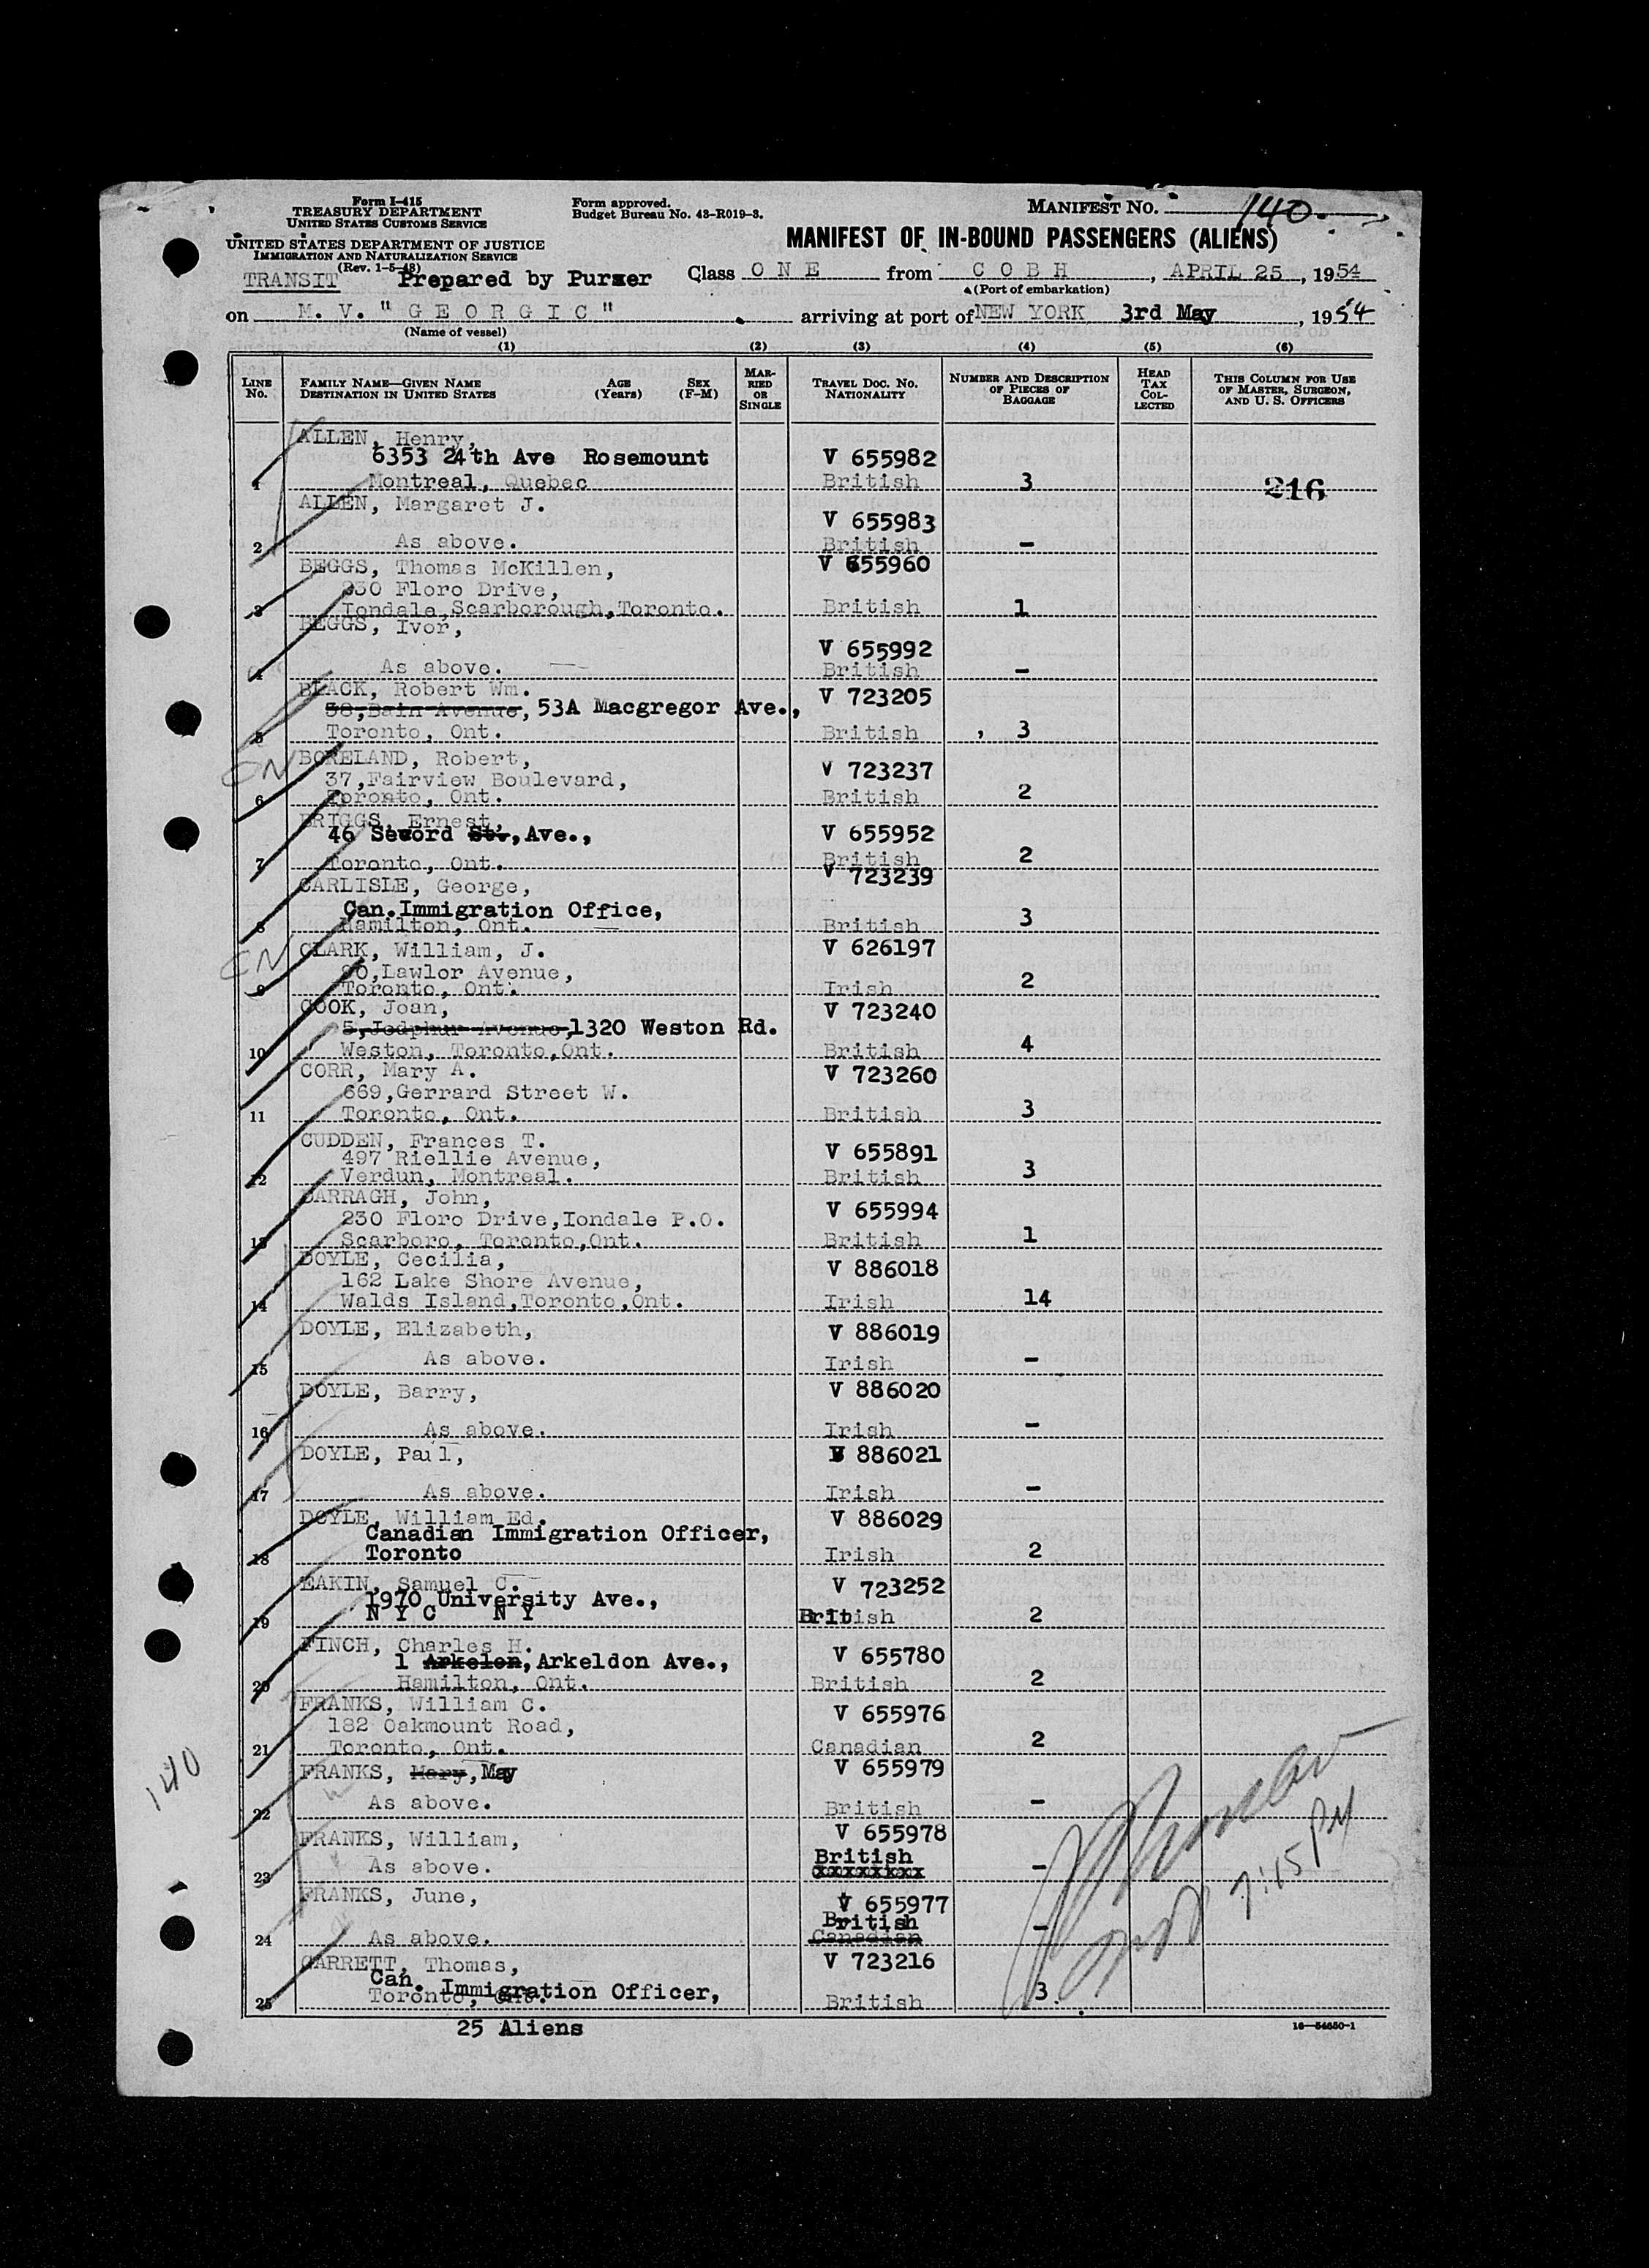 Form I-415
TREASURY DEPARTMENT
UNITED STATES CUSTOMS SERVICE
Form approved.
Budget Bureau No. 43-R019-3.
MANIFEST NO. 140
UNITED STATES DEPARTMENT OF JUSTICE
IMMIGRATION AND NATURALIZATION SERVICE
(Rev. 1-5-48)
MANIFEST OF IN-BOUND PASSENGERS (ALIENS)
TRANSIT Prepared by Purser Class O N E from C O B H, APRIL 25, 1954
(Port of embarkation)
on M. V. "G E O R G I C" arriving at port of NEW YORK 3rd May, 1954
(Name of vessel)
(1) (2) (3) (4) (5) (6)
LINE No. FAMILY NAME—GIVEN NAME DESTINATION IN UNITED STATES AGE (Years) SEX (F-M) MARRIED OR SINGLE TRAVEL DOC. NO. NATIONALITY NUMBER AND DESCRIPTION OF PIECES OF BAGGAGE HEAD TAX COLLECTED THIS COLUMN FOR USE OF MASTER, SURGEON, AND U. S. OFFICERS
ALLEN, Henry,
6353 24th Ave Rosemount V 655982
1 Montreal, Quebec British 3 216
ALLEN, Margaret J.
V 655983
2 As above. British -
BEGGS, Thomas McKillen, V 655960
230 Floro Drive,
3 Iondale, Scarborough, Toronto. British 1
BEGGS, Ivor,
V 655992
4 As above. British -
BLACK, Robert Wm. V 723205
38, Bain Avenue, 53A Macgregor Ave.,
5 Toronto, Ont. British , 3
CN BORELAND, Robert,
37, Fairview Boulevard, V 723237
6 Toronto, Ont. British 2
BRIGGS, Ernest,
46 Secord St., Ave., V 655952
7 Toronto, Ont. British 2
CARLISLE, George, V 723239
Can. Immigration Office,
8 Hamilton, Ont. British 3
CN CLARK, William, J. V 626197
90, Lawlor Avenue,
9 Toronto, Ont. Irish 2
COOK, Joan, V 723240
5, Jodphur Avenue, 1320 Weston Rd.
10 Weston, Toronto, Ont. British 4
CORR, Mary A. V 723260
669, Gerrard Street W.
11 Toronto, Ont. British 3
CUDDEN, Frances T.
497 Riellie Avenue, V 655891
12 Verdun, Montreal. British 3
DARRAGH, John,
230 Floro Drive, Iondale P.O. V 655994
13 Scarboro, Toronto, Ont. British 1
DOYLE, Cecilia, V 886018
162 Lake Shore Avenue,
14 Walds Island, Toronto, Ont. Irish 14
DOYLE, Elizabeth, V 886019
15 As above. Irish -
DOYLE, Barry, V 886020
16 As above. Irish -
DOYLE, Paul, V 886021
17 As above. Irish -
DOYLE, William Ed. V 886029
Canadian Immigration Officer,
18 Toronto Irish 2
EAKIN, Samuel C. V 723252
1970 University Ave.,
19 N Y C N Y British 2
FINCH, Charles H.
1 Arkelon, Arkeldon Ave., V 655780
20 Hamilton, Ont. British 2
FRANKS, William C. V 655976
182 Oakmount Road,
21 Toronto, Ont. Canadian 2
FRANKS, Mary, May V 655979
22 As above. British -
FRANKS, William, V 655978
British
23 As above. xxxxxxxx -
FRANKS, June, V 655977
British
24 As above. Canadian -
GARRETT, Thomas, V 723216
Can. Immigration Officer,
25 Toronto, Ont. British 3
25 Aliens
16—54650-1
140
7:15 PM